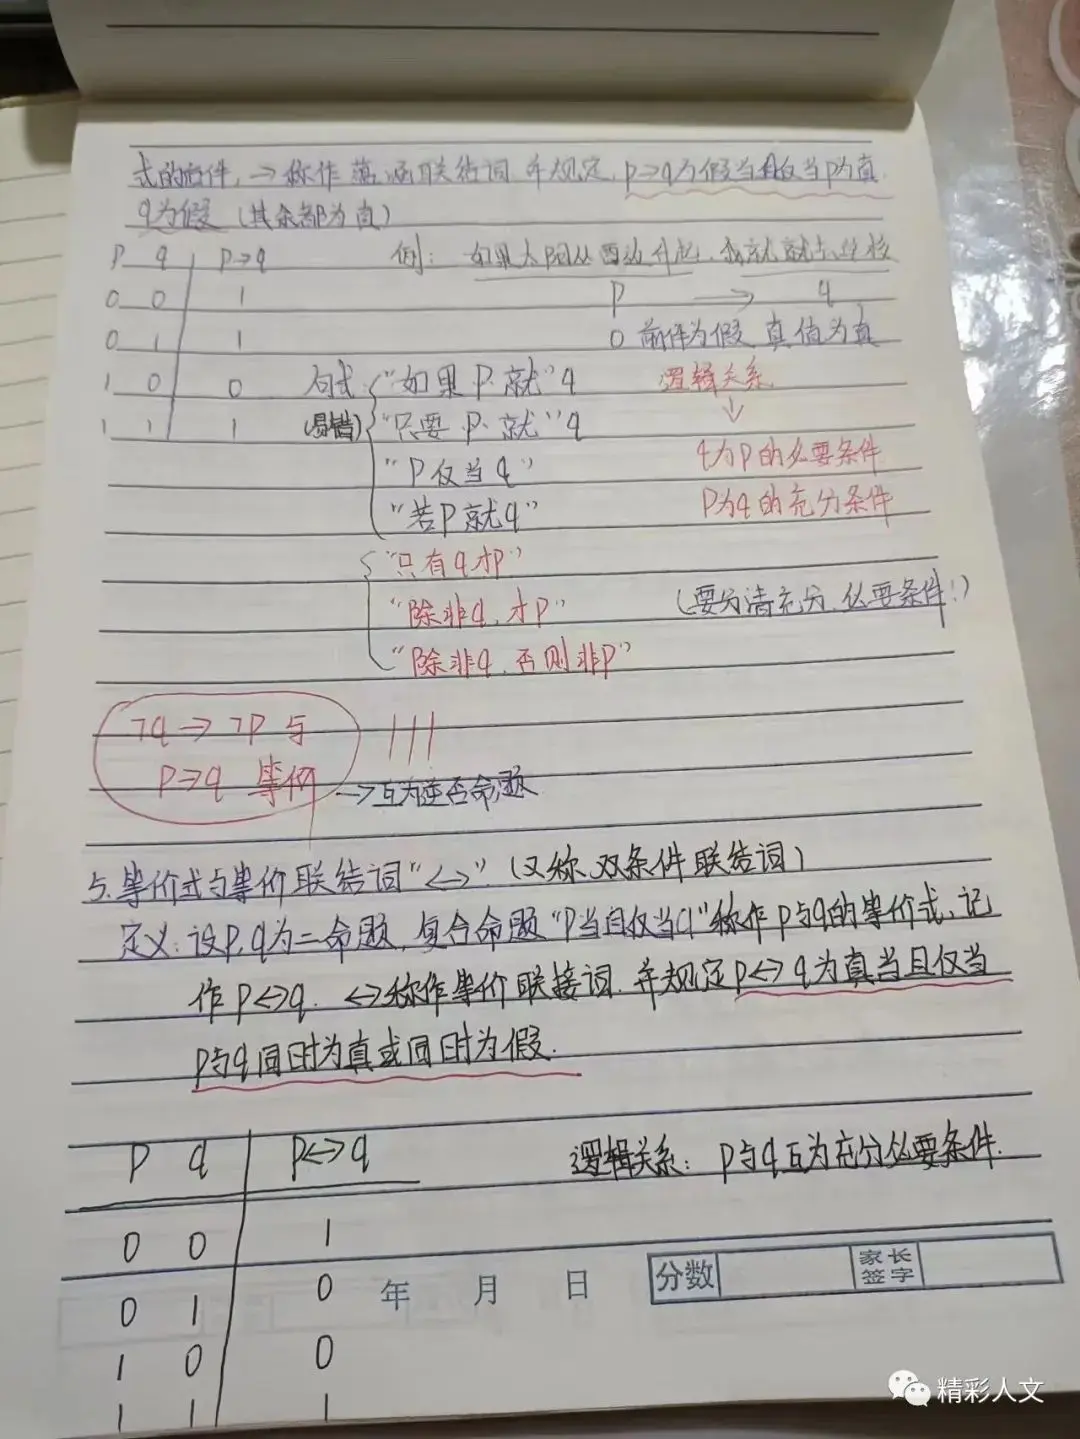 式的后件，→称作蕴涵联结词，并规定，p→q为假当且仅当p为真
q为假（其余都为真）
p q p→q 例：如果太阳从西边升起，我就就去学校
0 0 1 p → q
0 1 1 0 前件为假 真值为真
1 0 0 句式 “如果 p 就” q 逻辑关系
1 1 1 (易错) “只要 p 就” q ↓
“p 仅当 q” q为p的必要条件
“若p就q” p为q的充分条件
“只有q才p”
“除非q，才p” (要分清充分、必要条件！)
“除非q，否则非p”
¬q→¬p 与
p→q 等价 → 互为逆否命题
5.等价式与等价联结词“↔”（又称双条件联结词）
定义：设p,q为二命题，复合命题“p当且仅当q”称作p与q的等价式，记
作p↔q. ↔称作等价联接词，并规定p↔q为真当且仅当
p与q同时为真或同时为假.
p q p↔q 逻辑关系：p与q互为充分必要条件.
0 0 1
0 1 0
1 0 0
1 1 1
年 月 日 分数 家长签字
精彩人文